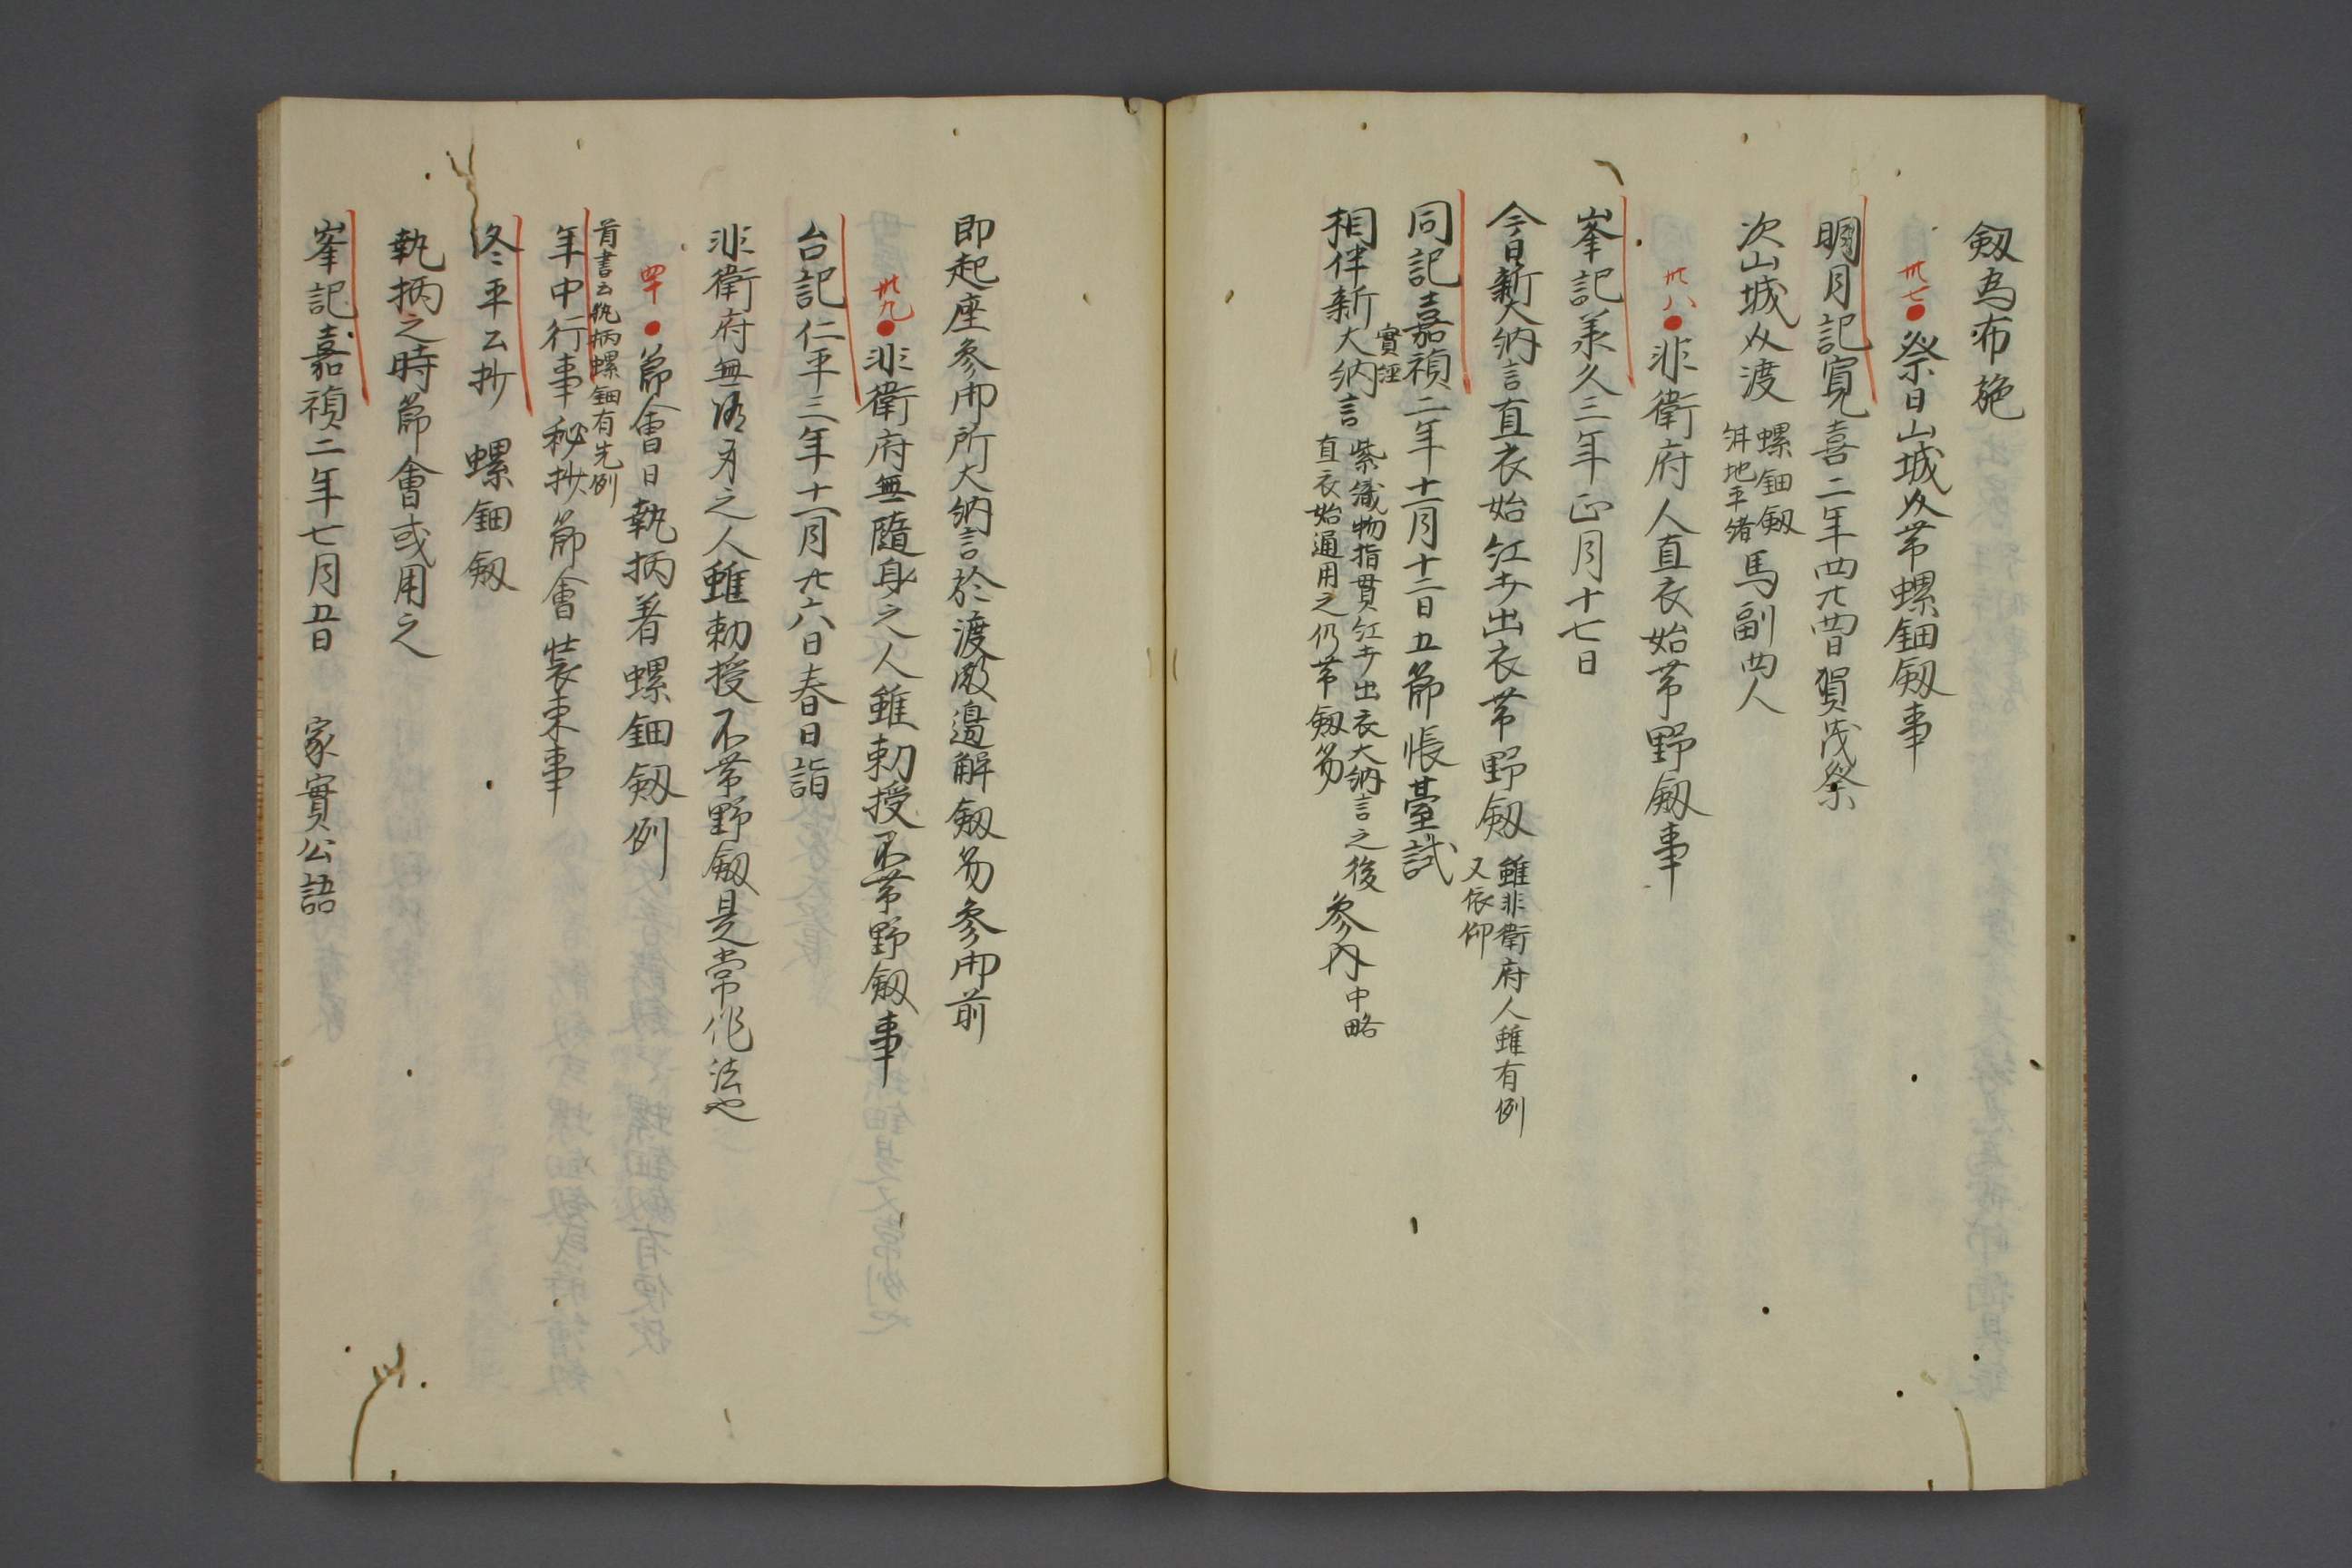 劔為布施
卅七●祭日山城介帯螺鈿劔事
明月記寛喜二年四廿四日賀茂祭
次山城介渡 螺鈿劔
紺地平緒 馬副両人
卅八●非衛府人直衣始帯野劔事
峯記承久三年正月十七日
今日新大納言直衣始紅打出衣帯野劔 雖非衛府人雖有例
又依仰
同記嘉禎二年十一月十二日五節帳臺試
相伴新大納言 實經 紫織物指貫紅打出衣大納言之後
直衣始通用之仍帯劔笏 参内 中略
即起座参御所大納言於渡殿邉解劔笏参御前
卅九●非衛府無隨身之人雖勅授不帯野劔事
台記仁平三年十一月廿六日春日詣
非衛府無随身之人雖勅授不帯野劔是常作法也
四十●節會日執柄着螺鈿劔例
首書云執柄螺鈿有先例
年中行事秘抄 節會装束事
冬平公抄 螺鈿劔
執柄之時節會或用之
峯記嘉禎二年七月五日 家實公語